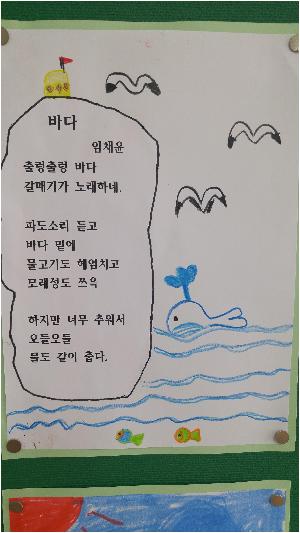 바다
임채윤
출렁출렁 바다
갈매기가 노래하네.
파도소리 듣고
바다 밑에
물고기도 헤엄치고
모래성도 쓰윽
하지만 너무 추워서
오들오들
몸도 같이 춥다.